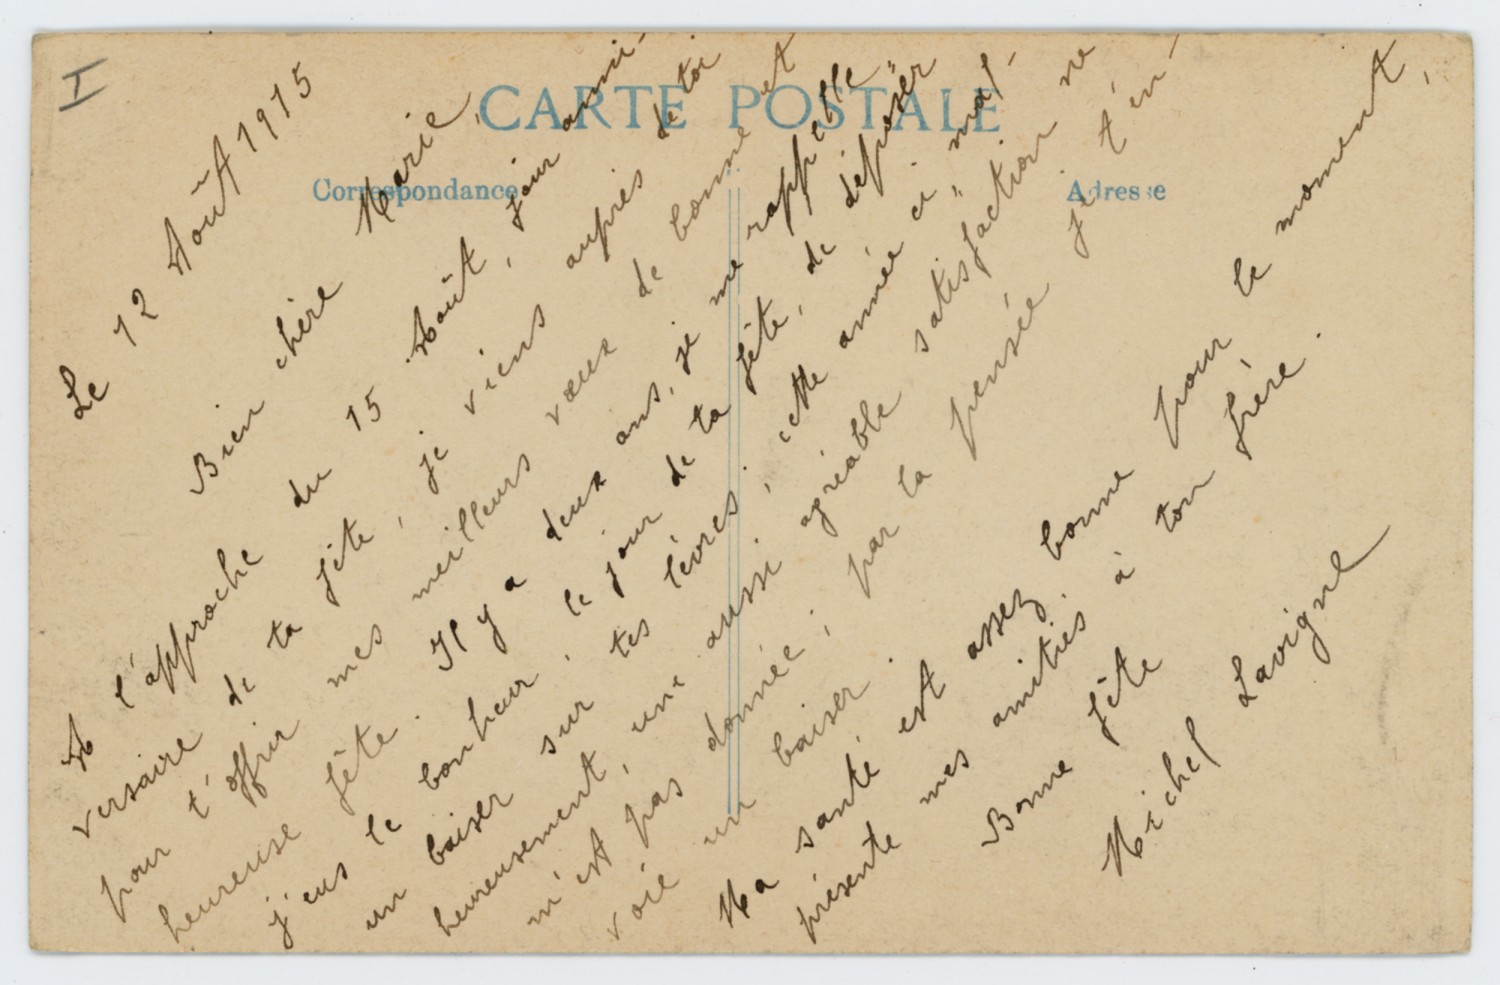 I
CARTE POSTALE
Correspondance
Adresse
Le 12 Août 1915
Bien chère Marie,
A l'approche du 15 Août, jour anni-
versaire de ta fête, je viens auprès de toi
pour t'offrir mes meilleurs vœux de bonne et
heureuse fête. Il y a deux ans, je me rappelle
j'eus le bonheur, le jour de ta fête, de "déposer"
un baiser sur tes lèvres; cette année ci" mal-
heureusement, une aussi agréable satisfaction ne
m'est pas donnée; par la pensée je t'en-
voie un baiser.
Ma santé est assez bonne pour le moment,
présente mes amitiés à ton frère.
Bonne fête
Michel Lavigne